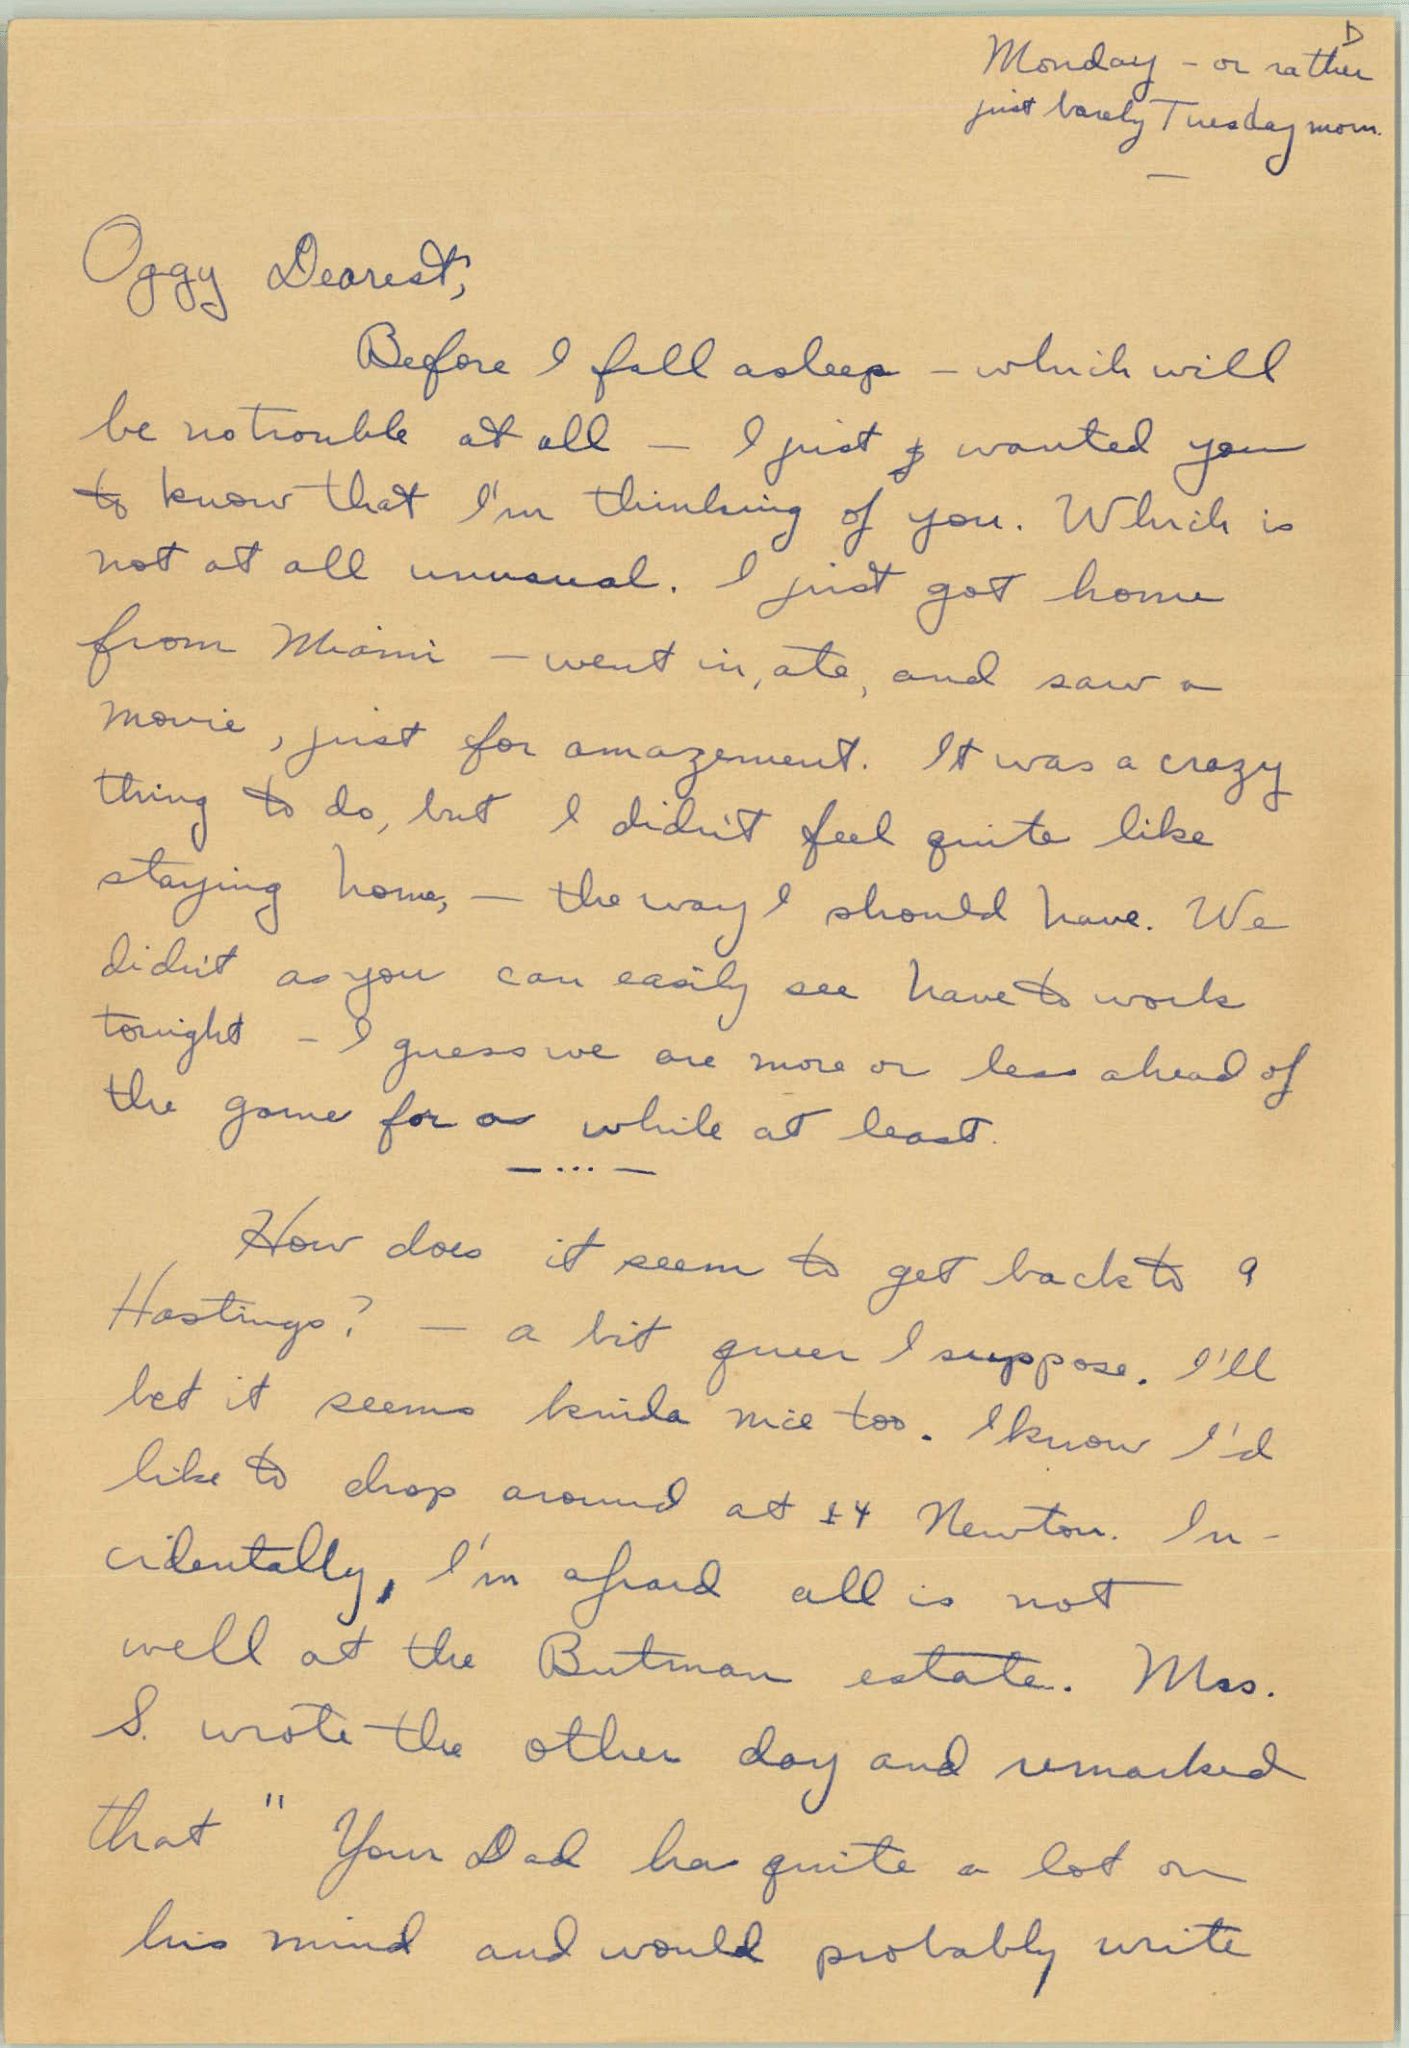 D
Monday – or rather
just barely Tuesday morn.
Oggy Dearest,
Before I fall asleep – which will
be no trouble at all – I just wanted you
to know that I'm thinking of you. Which is
not at all unusual. I just got home
from Miami – went in, ate, and saw a
movie, just for amazement. It was a crazy
thing to do, but I didn't feel quite like
staying home, – the way I should have. We
didn't as you can easily see have to work
tonight – I guess we are more or less ahead of
the game for a while at least.
— ... —
How does it seem to get back to 9
Hastings? – a bit queer I suppose. I'll
bet it seems kinda nice too. I know I'd
like to drop around at 14 Newton. In-
cidentally, I'm afraid all is not
well at the Butman estate. Mrs.
S. wrote the other day and remarked
that "Your Dad has quite a lot on
his mind and would probably write